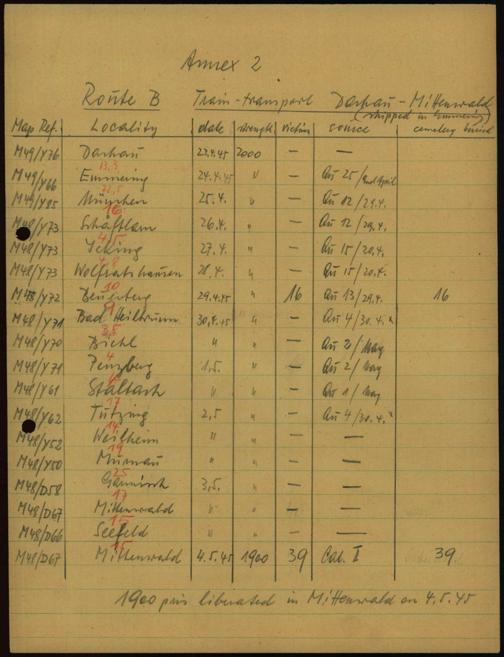 Annex 2
Route B Train-transport Dachau - Mittenwald
(shipped in Emmering)
Map Ref. Locality date strength victims source cemetery buried
M49/Y76 Dachau 23.4.45 2000 — —
13,3
M49/Y66 Emmering 24.4.45 " — Au 25/
22,5
M49/Y85 München 25.4. " — Au 12/29.4.
16
M48/Y73 Schäftlarn 26.4. " — Au 12/29.4.
4,5
M48/Y73 Icking 27.4. " — Au 15/20.4.
M48/Y73 Wolfratshausen 28.4. " — Au 15/20.4.
10
M48/Y72 Beuerberg 29.4.45 " 16 Au 13/29.4. 16
M48/Y71 Bad Heilbrunn 30.4.45 " — Au 4/30.4."
3,5
M48/Y70 Bichl " " — Au 2/May
4
M48/Y71 Penzberg 1.5. " — Au 2/May
M48/Y61 Staltach " " — Au 1/May
17
M48/Y62 Tutzing 2.5. " — Au 4/30.4."
14
M48/Y52 Weilheim " " — —
19
M48/Y50 Murnau " " — —
25
M48/D58 Garmisch 3.5. " — —
17
M48/D67 Mittenwald " " — —
15
M48/D66 Seefeld " " — —
15
M48/D67 Mittenwald 4.5.45 1900 39 Cat. I 39
1900 pris liberated in Mittenwald on 4.5.45